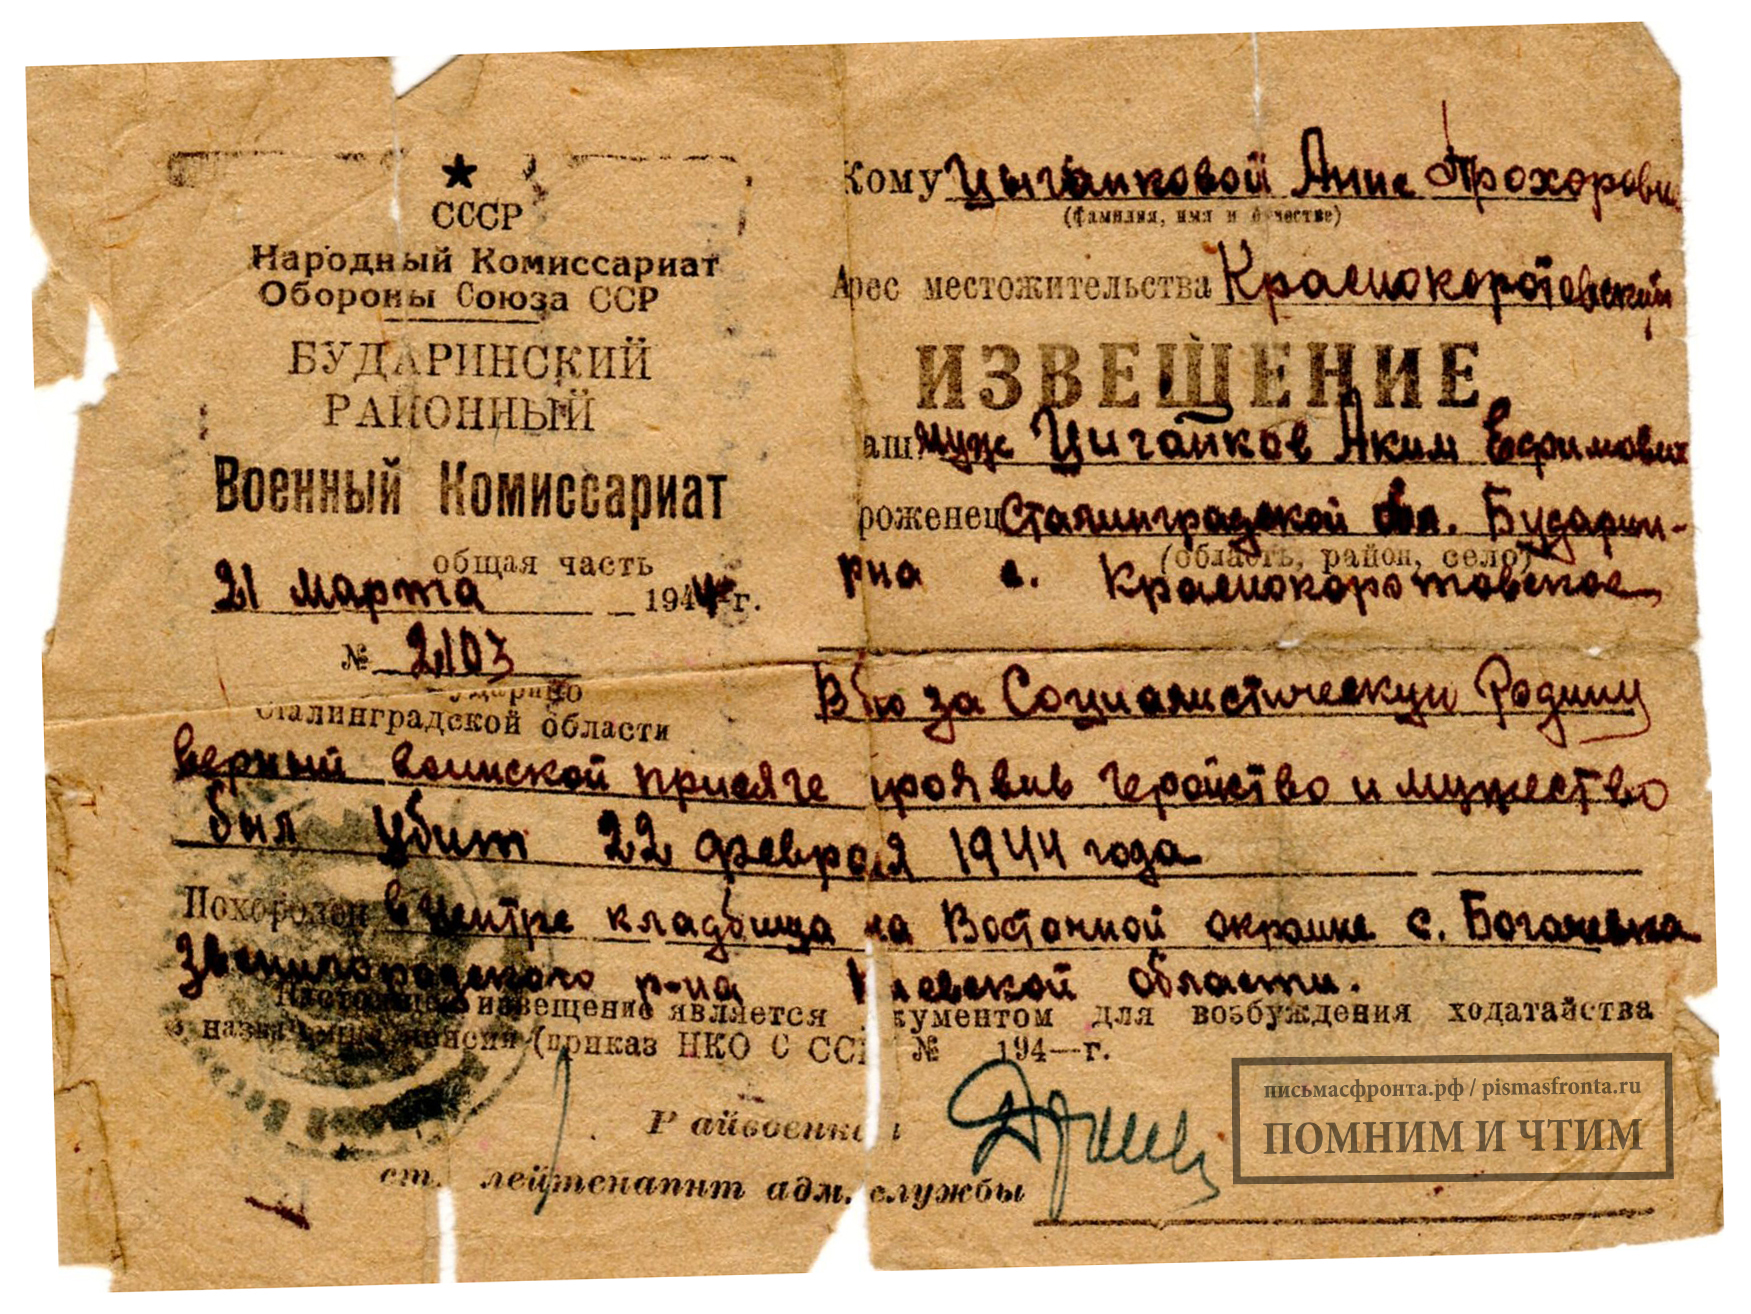 СССР
Народный Комиссариат
Обороны Союза ССР
БУДАРИНСКИЙ
РАЙОННЫЙ
Военный Комиссариат
общая часть
21 марта 1944 г.
№ 2103
Сталинградской области
Кому Цыганковой Анне Прохоровн
(фамилия, имя и отчестве)
Арес местожительства Краснокоротовский
ИЗВЕЩЕНИЕ
аш муж Циганков Аким Ефимович
роженец Сталинградской обл. Бударин-
(область, район, село)
рна с. Краснокоротовское
В бою за Социалистическую Родину
верный воинской присяге проявив геройство и мужество
был убит 22 февраля 1944 года
Похоронен в центре кладбища на Восточной окраине с. Богачевка
Звенигородского р-на Киевской области.
Настоящее извещение является документом для возбуждения ходатайства
назначении пенсии (приказ НКО С ССР № 194—г.
Райвоенком
ст. лейтенаннт адм. службы
письмасфронта.рф / pismasfronta.ru
ПОМНИМ И ЧТИМ